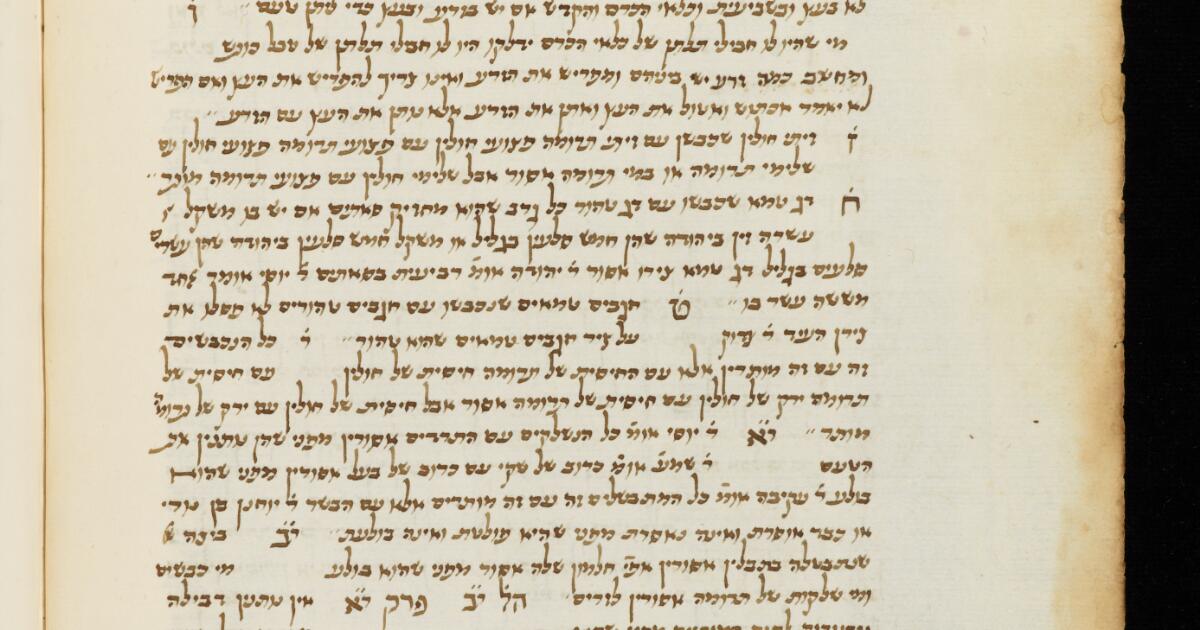 לא בעץ ובשביעית וכלאי הכרם והקדש אם יש בזרע ובעץ כדי ליתן טעם ז
מי שהיו לו חבילי תלתן של כלאי הכרם ידלקו היו לו חבילי תלתן של טבל כותש
ומחשב כמה זרע יש בהם ומפריש את הזרע ואינו צריך להפריש את העץ ואם הפריש
לא יאמר אכתוש ואטול את העץ ואתן את הזרע אלא נותן את העץ עם הזרע
ז זיתי חולין שכבשן עם זיתי תרומה פצועי חולין עם פצועי תרומה פצועי חולין עם
שלימי תרומה או במי תרומה אסור אבל שלימי חולין עם פצועי תרומה מותר
ח דג טמא שכבשו עם דג טהור כל גרב שהוא מחזיק סאתים אם יש בו משקל
עשרה זוז ביהודה שהן חמש סלעין בגליל או משקל חמש סלעין ביהודה שהן עשר
סלעים בגליל דג טמא צירו אסור ר יהודה אומ רביעית בסאתים ר יוסי אומר אחד
מששה עשר בו ט חגבים טמאים שנכבשו עם חגבים טהורים לא פסלו את
צירן העיד ר צדוק על ציר חגבים טמאים שהוא טהור י כל הנכבשים
זה עם זה מותרין אלא עם החיסית של תרומה חיסית של חולין עם חיסית של
תרומה ירק של חולין עם חיסית של תרומה אסור אבל חיסית של חולין עם ירק של תרומה
מותר יא ר יוסי אומ כל הנשלקים עם התרדים אסורין מפני שהן נותנין את
הטעם ר שמע אומ כרוב של שקי עם כרוב של בעל אסורין מפני שהוא
בולע ר עקיבה אומ כל המתבשלים זה עם זה מותרים אלא עם הבשר ר יוחנן בן נורי
או כבד אוסרת ואינה נאסרת מפני שהיא פולטת ואינה בולעת יב ביצה
שנתבשלה בתבלין אסורין אפי חלמון שלה אסור מפני שהוא בולע מי כבשים
ומי שלקות של תרומה אסורין לזרים הל יב פרק יא אין נותנין דבילה